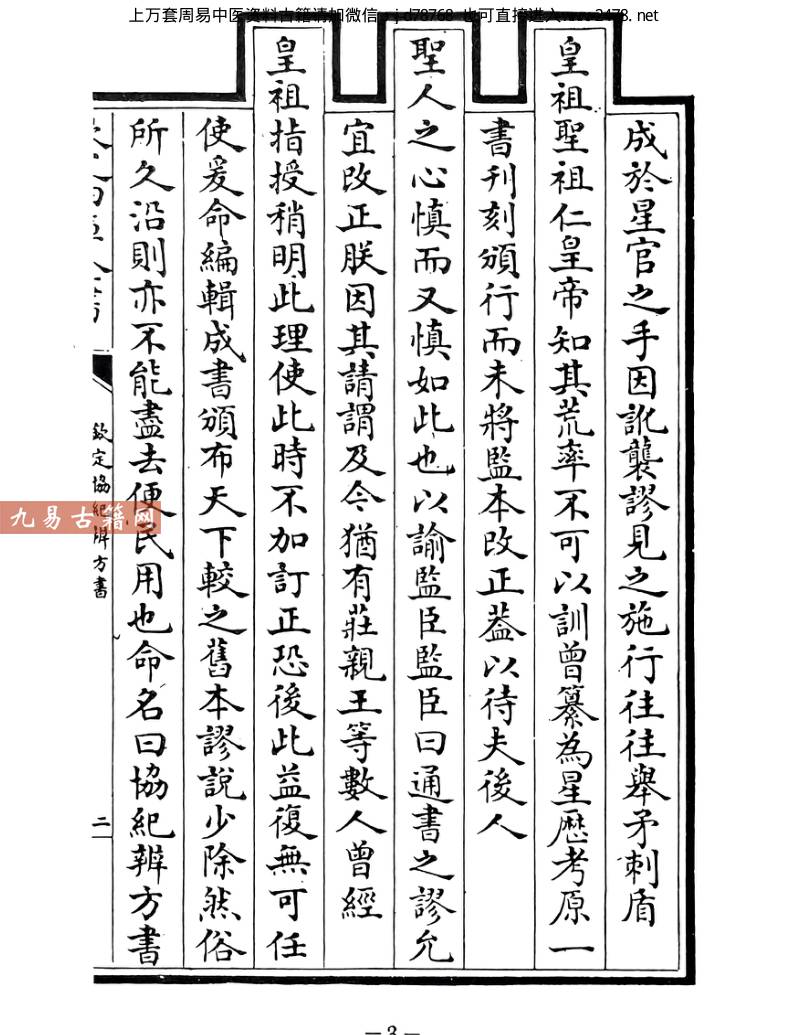 上万套周易中医资料古籍请加微信 j d78768 也可直接进入www.2478.net
成於星官之手因訛襲謬見之施行往往舉矛刺盾
皇祖聖祖仁皇帝知其荒率不可以訓曾纂為星歷考原一
書刊刻頒行而未將監本改正葢以待夫後人
聖人之心慎而又慎如此也以諭監臣監臣曰通書之謬允
宜改正朕因其請謂及今猶有莊親王等數人曾經
皇祖指授稍明此理使此時不加訂正恐後此益復無可任
使爰命編輯成書頒布天下較之舊本謬說少除然俗
所久沿則亦不能盡去便民用也命名曰協紀辨方書
欽定協紀辨方書
二
九易古籍网
—3—